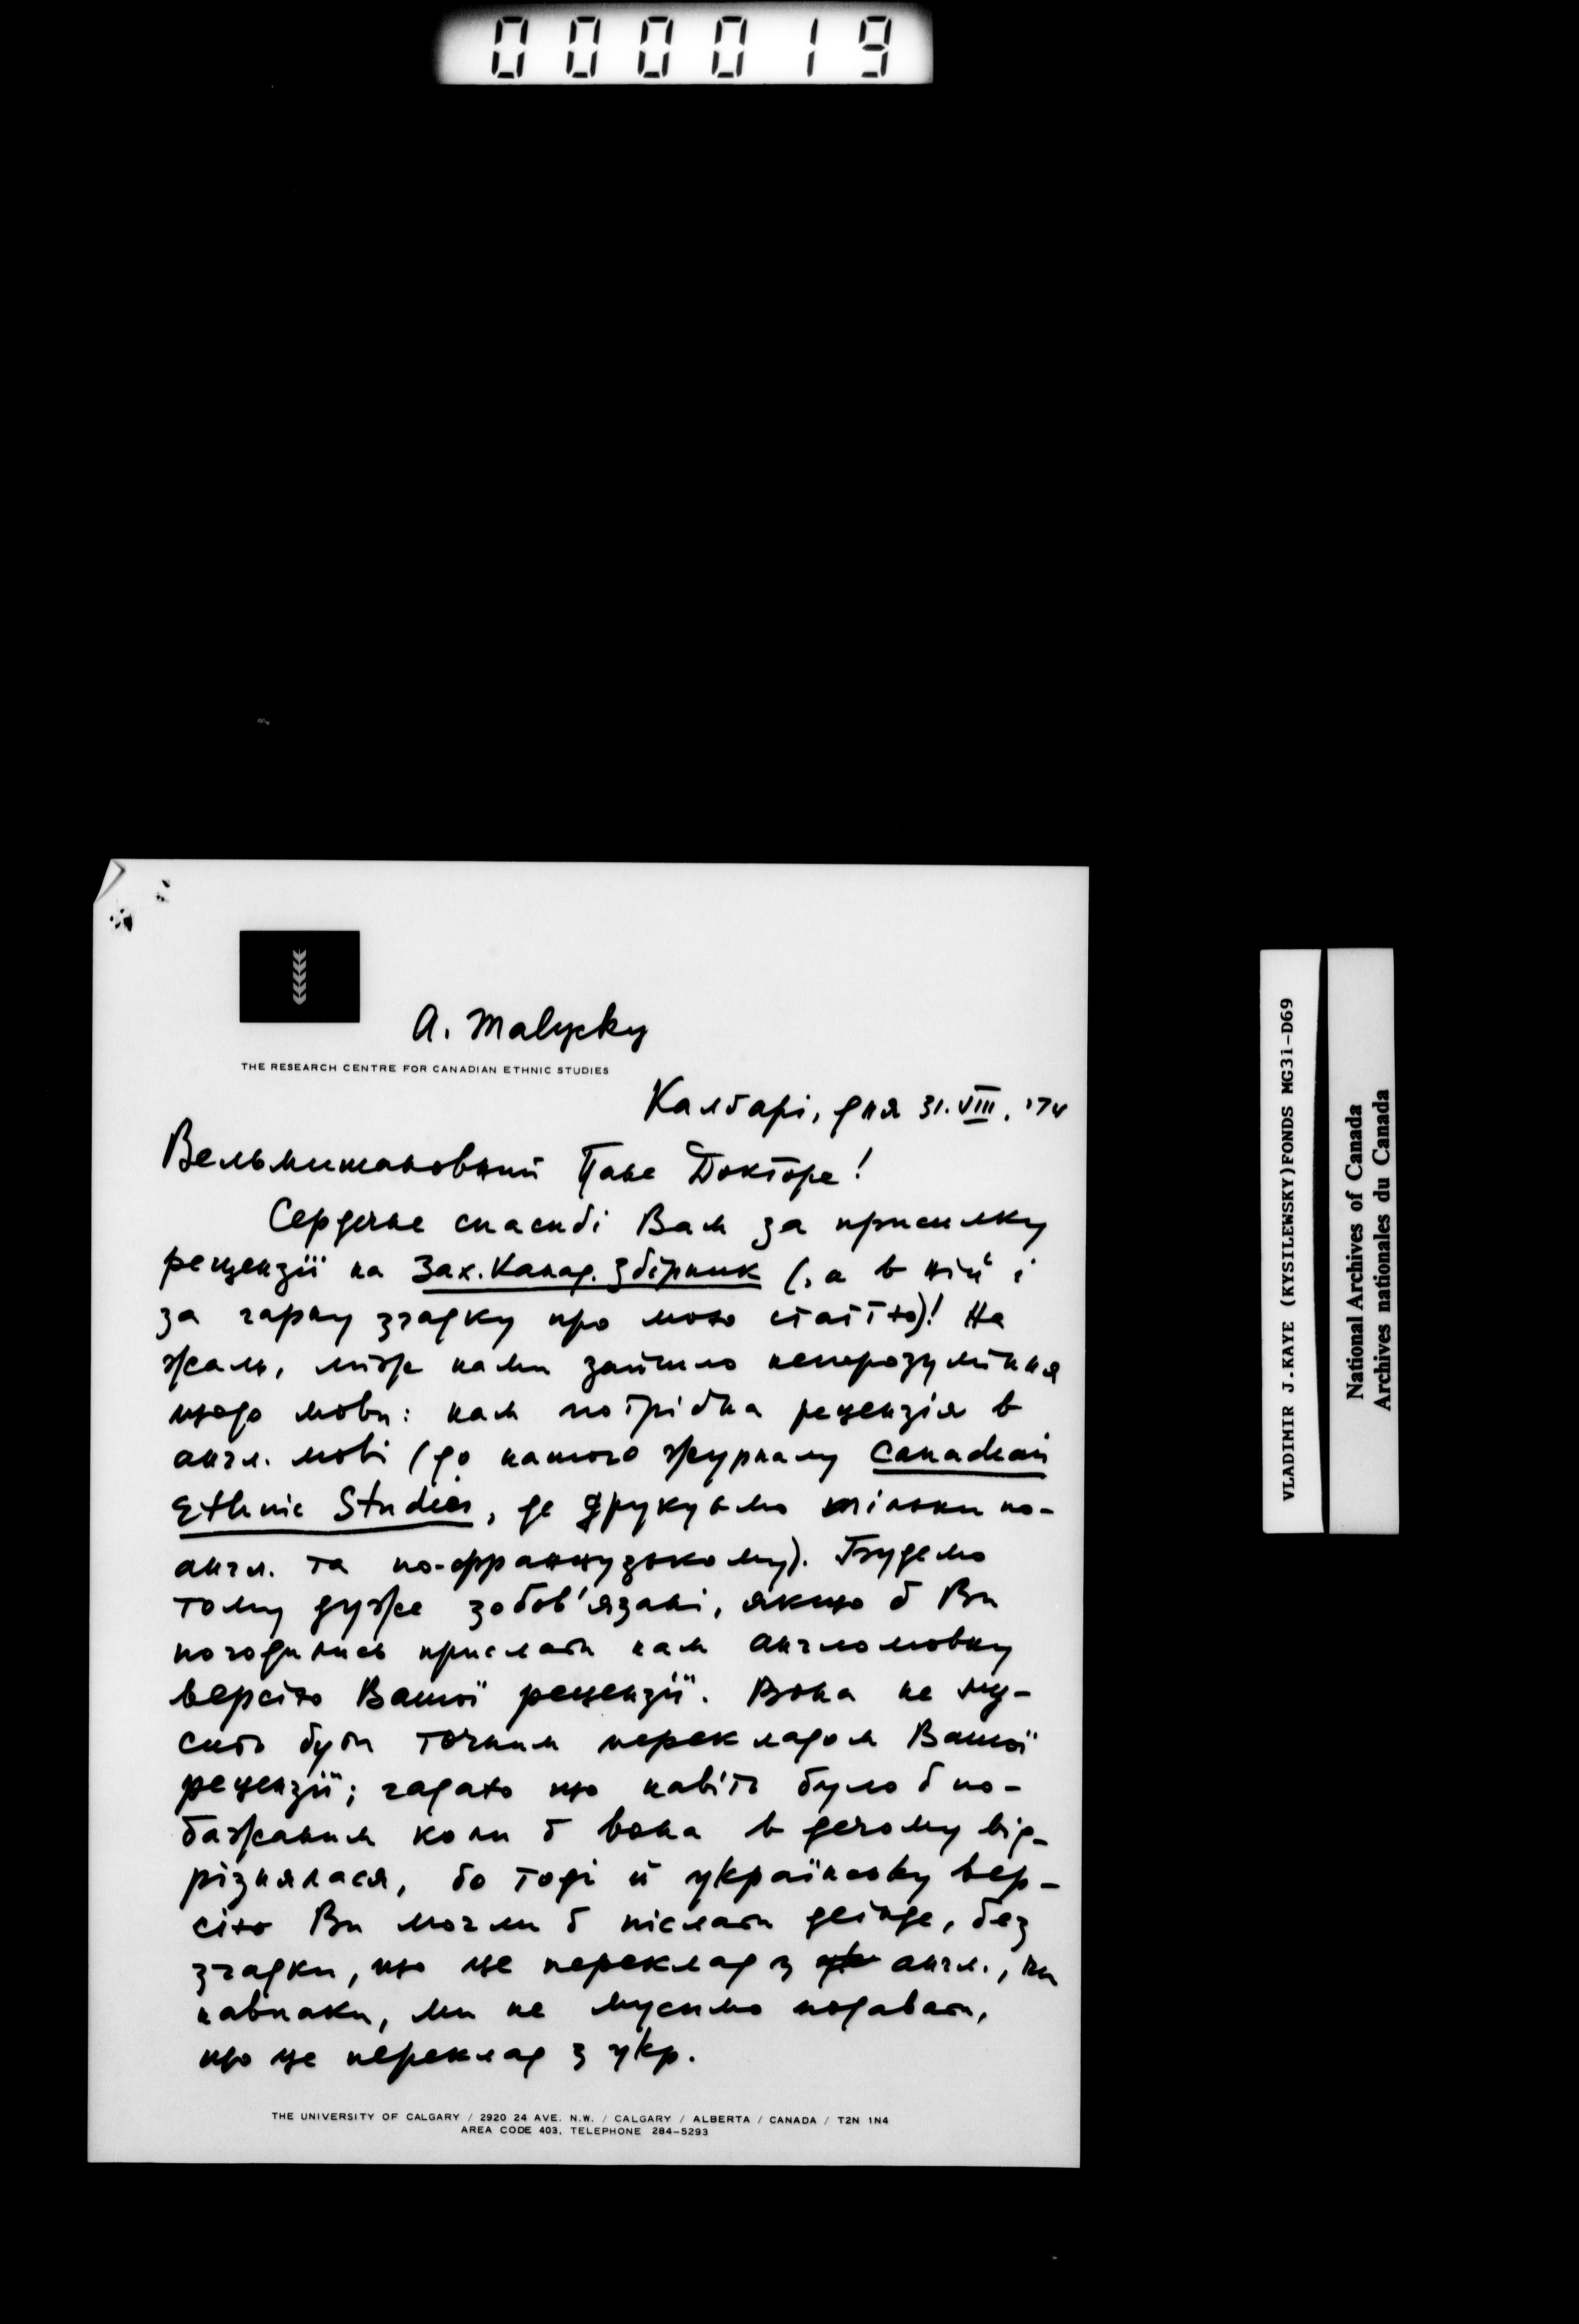 000019
A. Malycky
THE RESEARCH CENTRE FOR CANADIAN ETHNIC STUDIES
Калґарі, дня 31.VIII.'74
Вельмишановний Пане Докторе!
Сердечне спасибі Вам за присилку
рецензії на Зах. Канад. Збірник (, а в ній і
за гарну згадку про мою статтю)! На
жаль, між нами зайшло непорозуміння
щодо мови: нам потрібна рецензія в
англ. мові (до нашого журналу Canadian
Ethnic Studies, де друкуємо тільки по-
англ. та по-французькому). Будемо
тому дуже зобов'язані, якщо б Ви
погодились прислати нам англомовну
версію Вашої рецензії. Вона не му-
сить бути точним перекладом Вашої
рецензії; гадаю що навіть було б по-
бажаним коли б вона в дечому від-
різнялася, бо тоді й українську вер-
сію Ви могли б післати деінде, без
згадки, що це переклад з англ., ми
навпаки, ми не мусимо подавати,
що це переклад з укр.
THE UNIVERSITY OF CALGARY / 2920 24 AVE. N.W. / CALGARY / ALBERTA / CANADA / T2N 1N4
AREA CODE 403, TELEPHONE 284-5293
VLADIMIR J.KAYE (KYSILEWSKY)FONDS MG31-D69
National Archives of Canada
Archives nationales du Canada